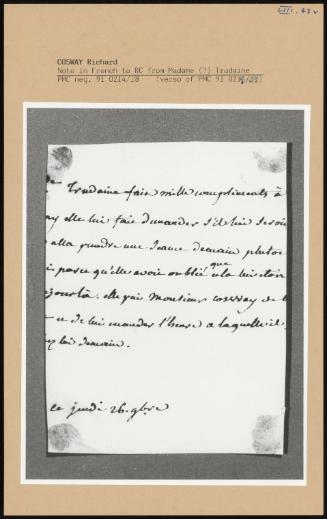 COSWAY Richard
Note in French to RC from Madame (?) Trudaine
PMC neg. 91 0214/18 (verso of PMC 91
de Trudaine fait mille compliments à
elle lui fait demander s'il lui seroit
alla prendre une seance demain plutot
parce qu'elle avoit oublié que
elle prie Monsieur cosway de
de lui mander l'heure a laquelle il
lui demain.
ce jeudi 26. 9bre